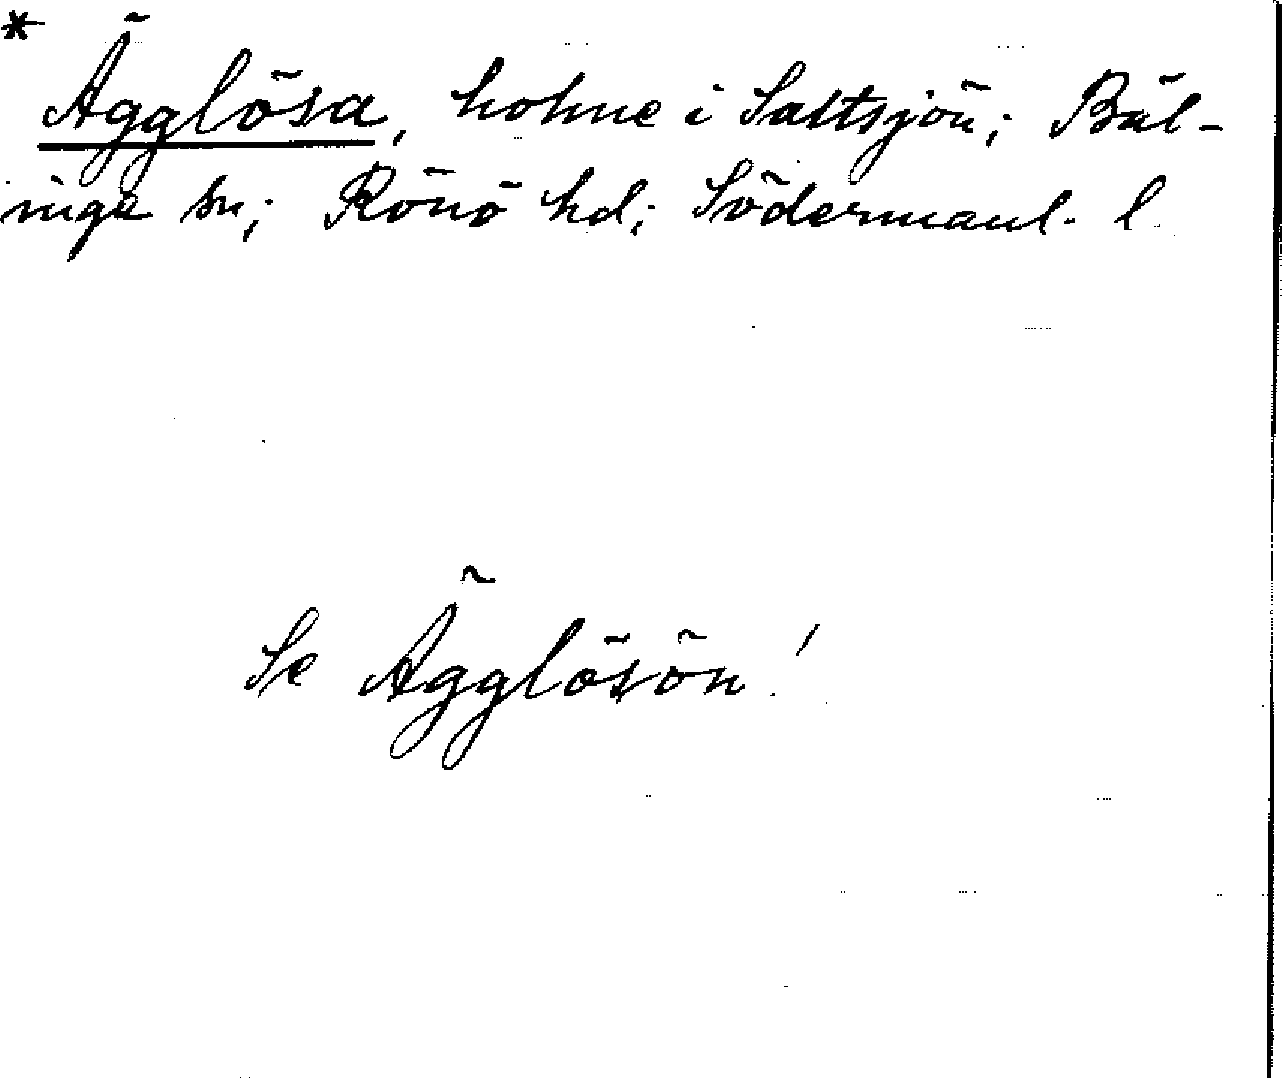 * Ägglösa, holme i Saltsjön; Bäl-
inge sn; Rönö hd; Södermanl. l
Se Ägglösön!